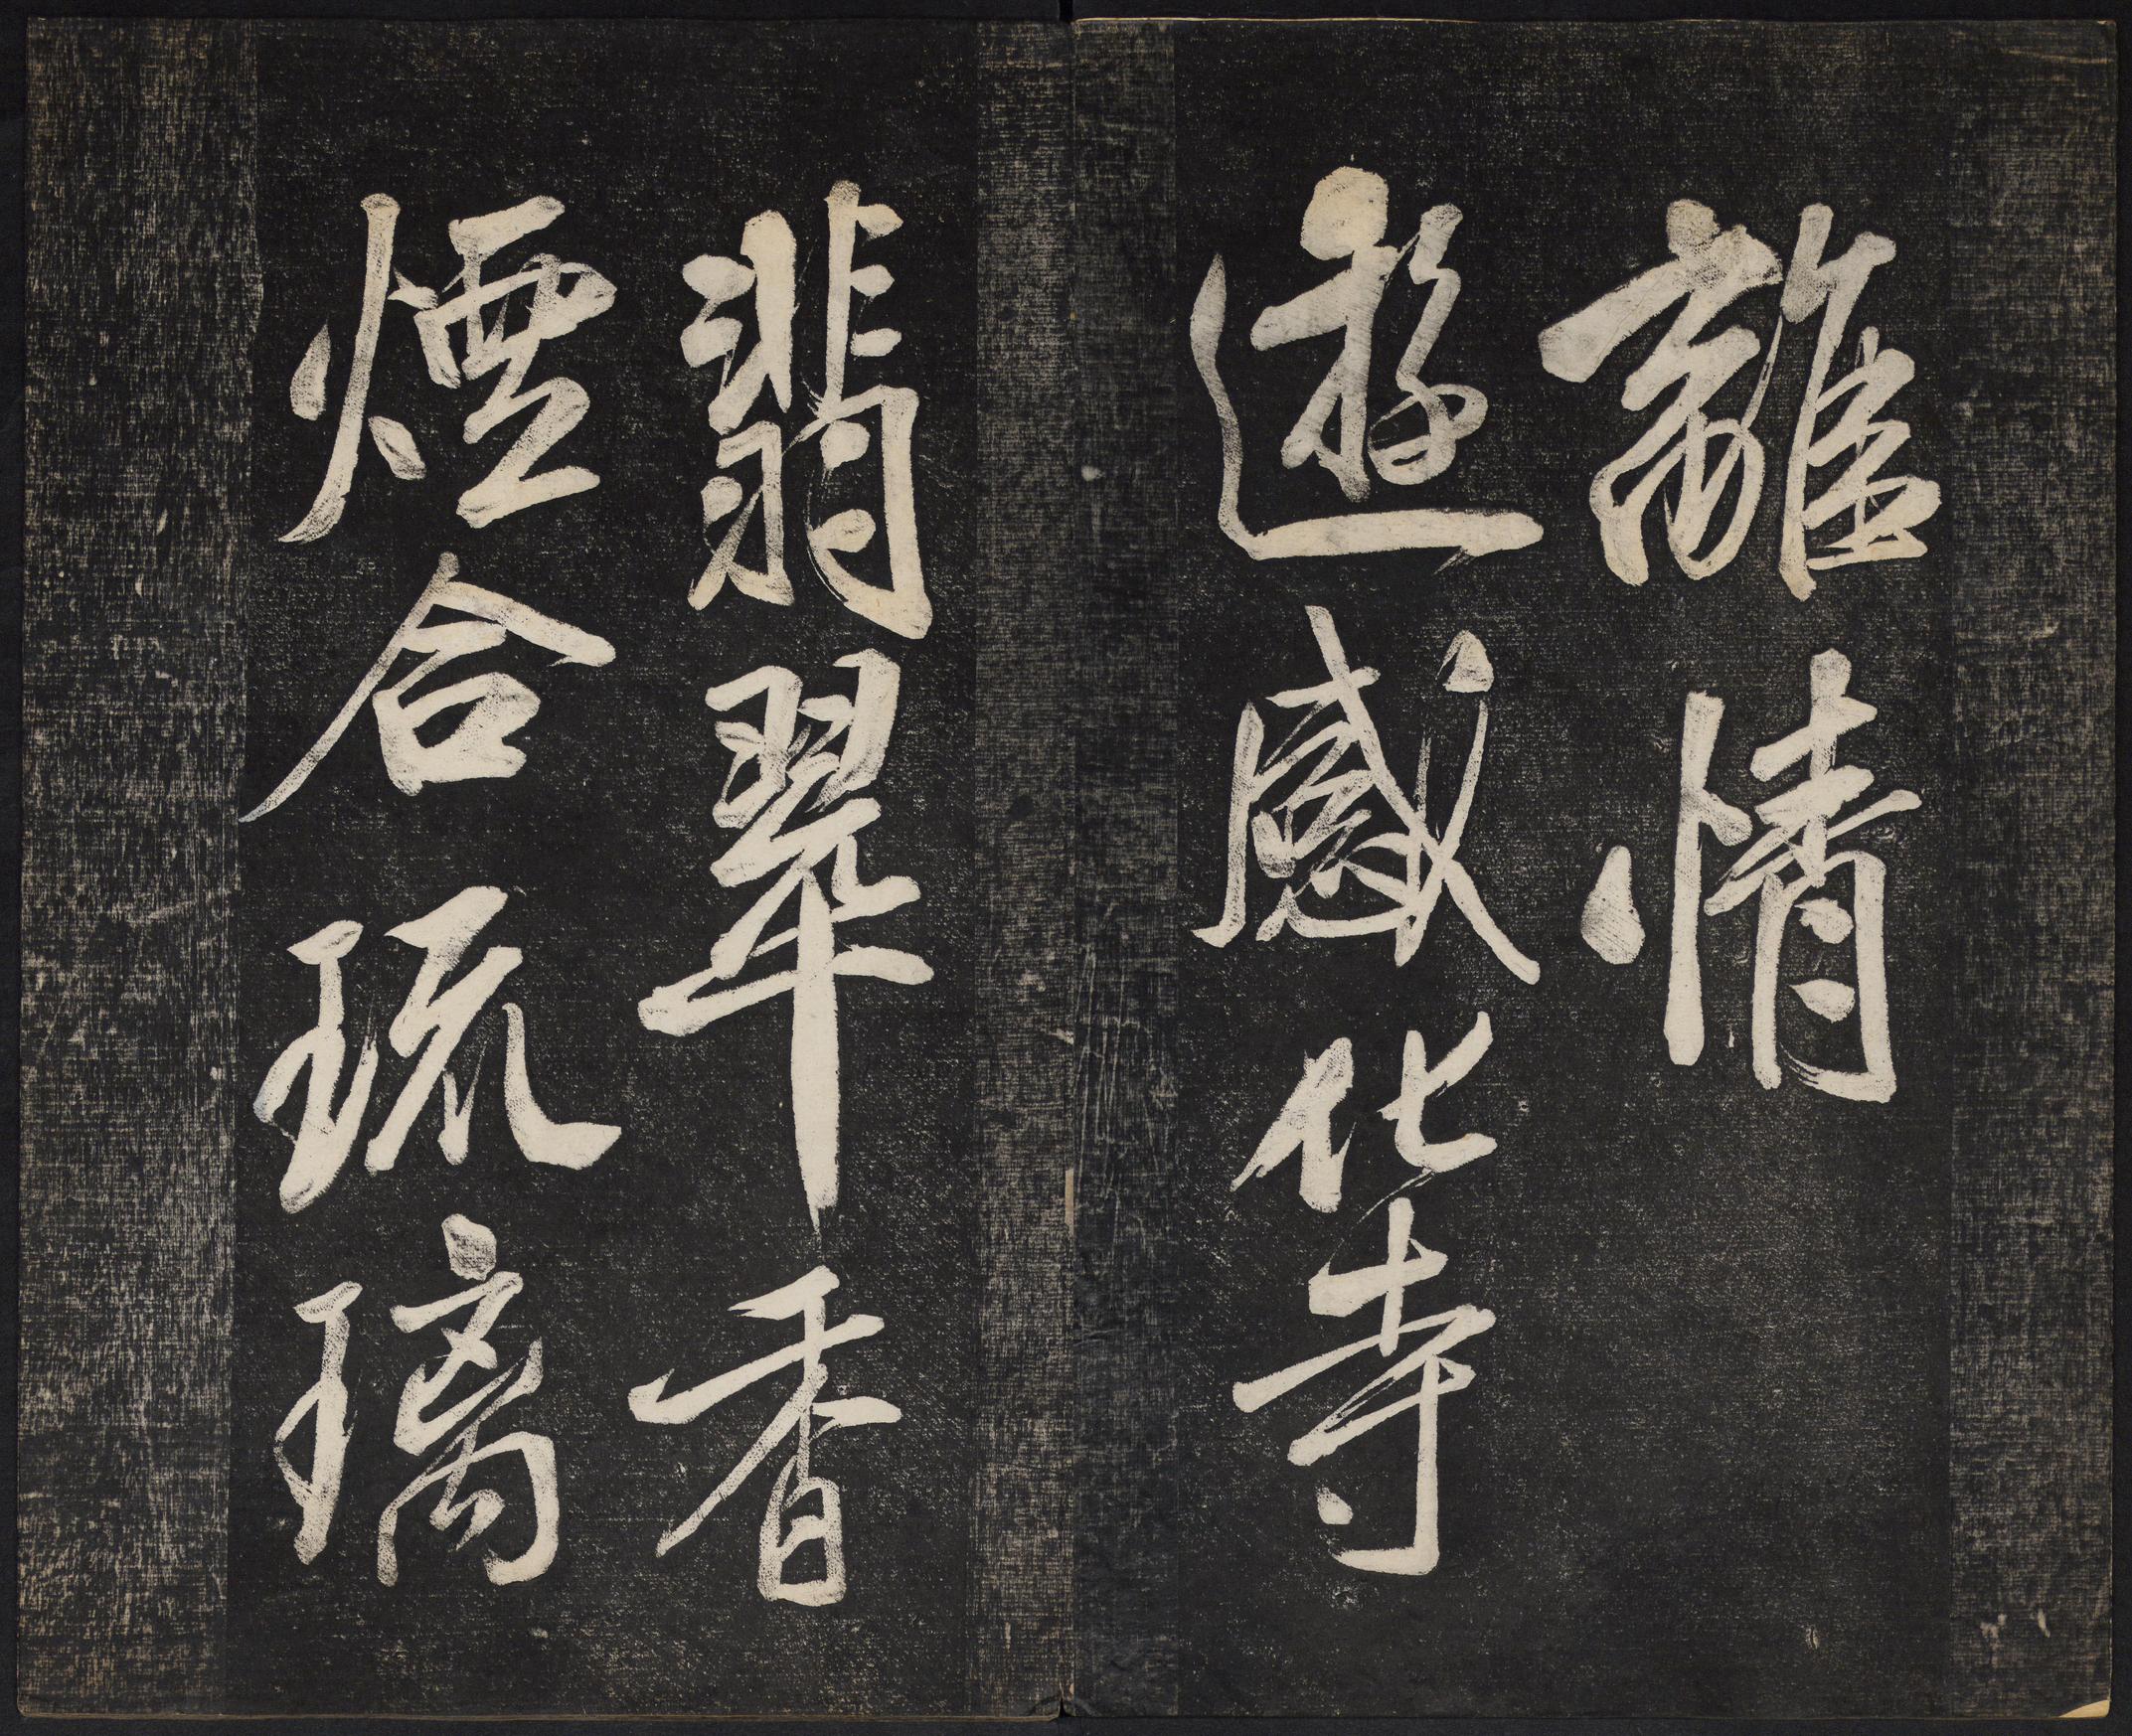 離情
遊感化寺
翡翠香
煙合琉璃